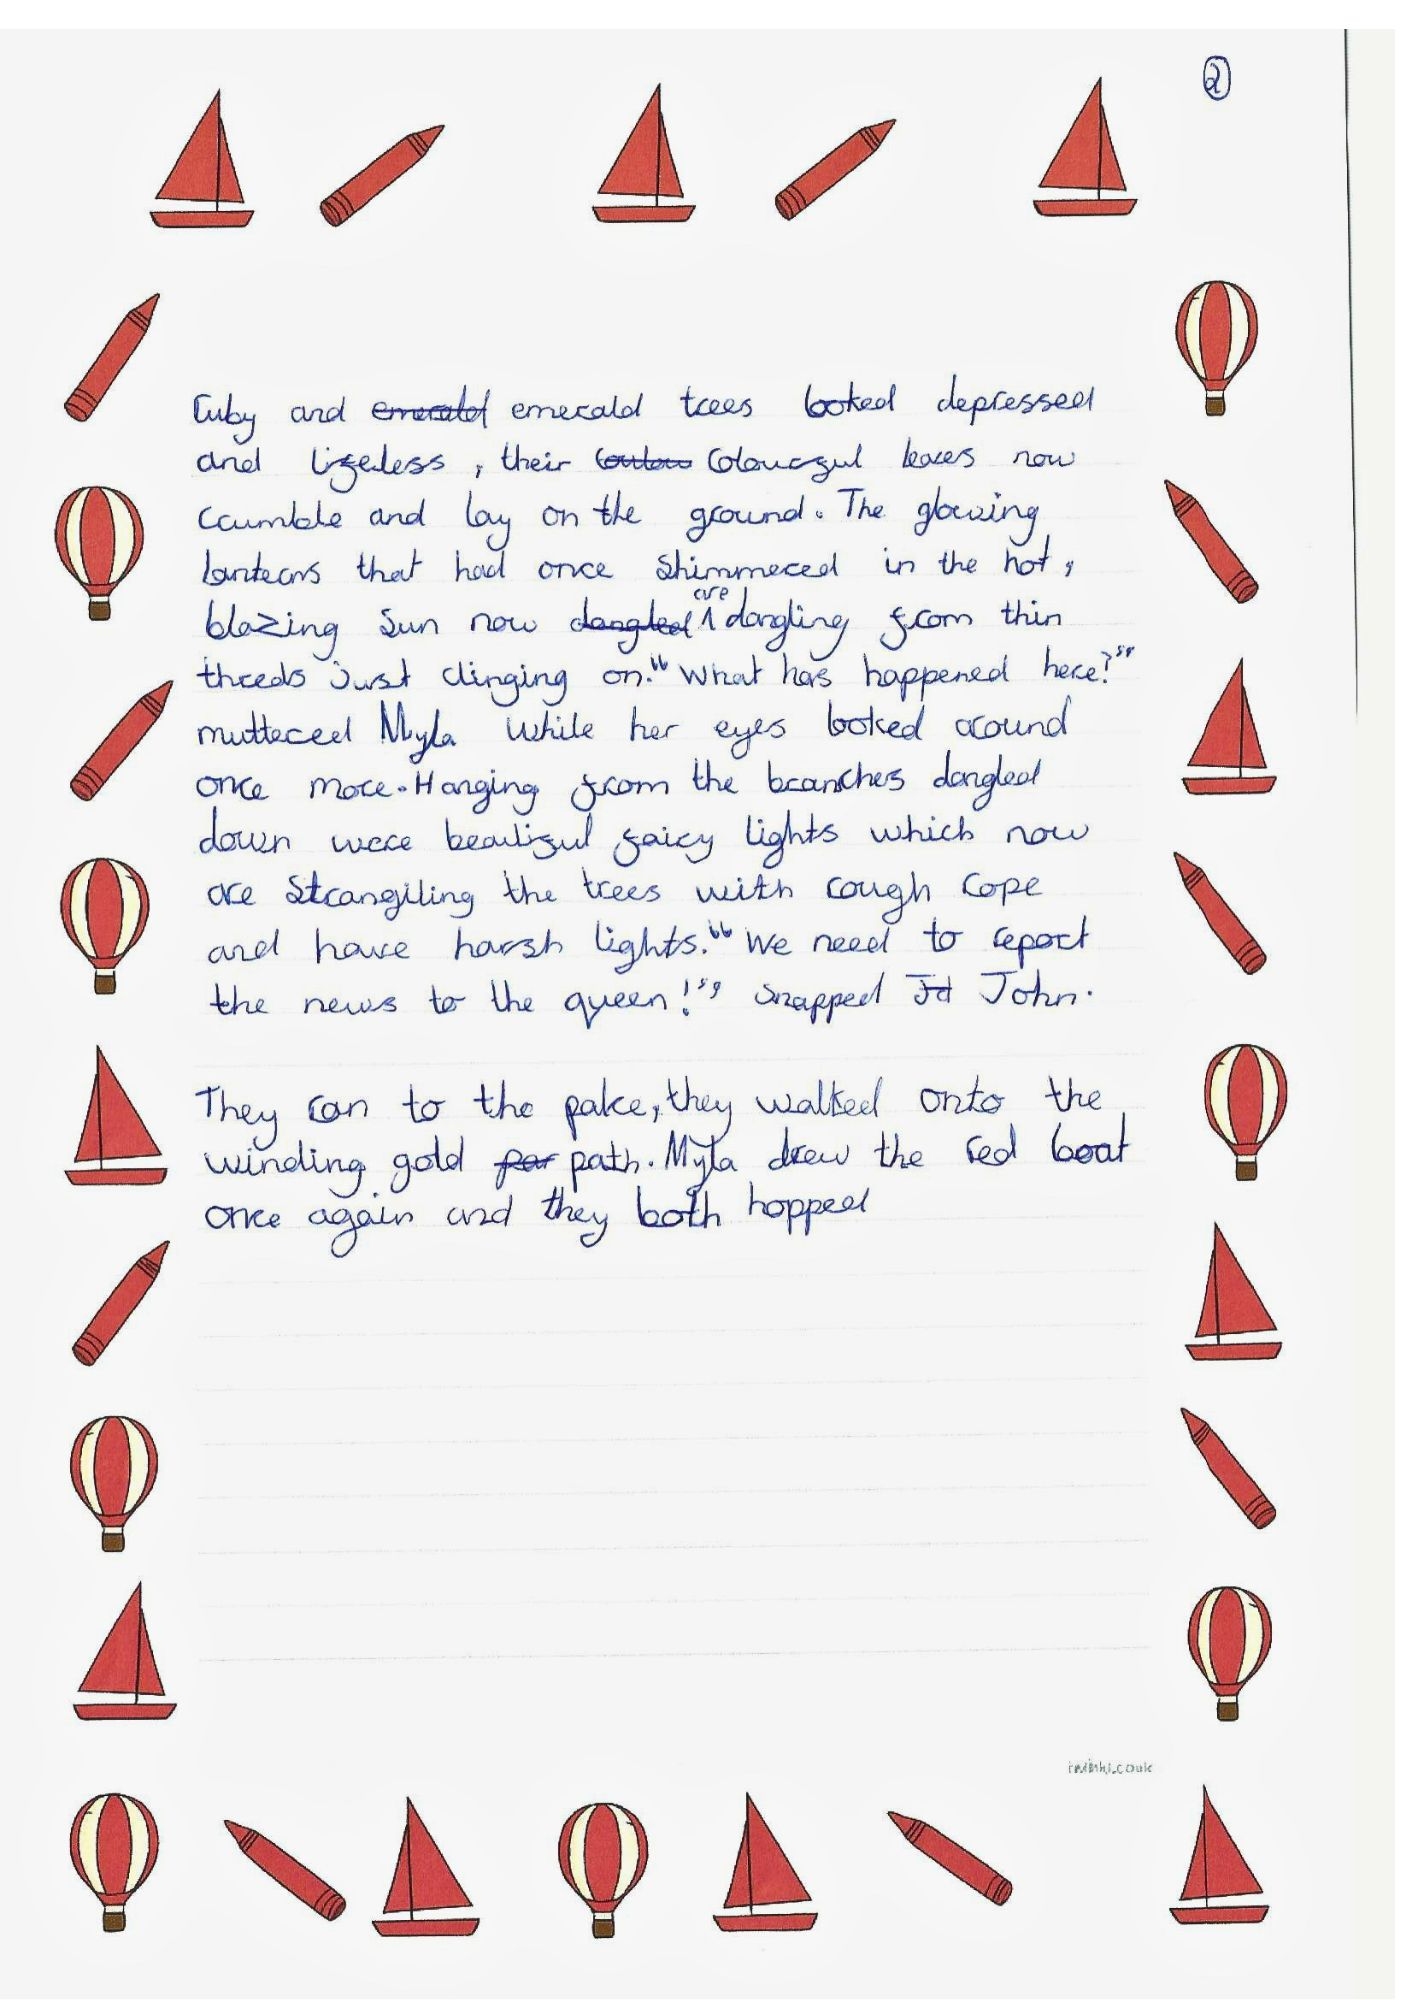 ②
ruby and ~~emerald~~ emerald trees looked depressed
and lifeless, their ~~coulou~~ colourful leaves now
crumble and lay on the ground. The glowing
lanterns that had once shimmered in the hot,
blazing sun now ~~dangled~~ are dangling from thin
threds just clinging on. "What has happened here?"
muttered Myla while her eyes looked around
once more. Hanging from the branches dangled
down were beautiful fairy lights which now
are strangiling the trees with rough rope
and have harsh lights. "We need to report
the news to the queen!" snapped ~~Jd~~ John.
They ran to the palce, they walked onto the
winding gold ~~par~~ path. Myla drew the red boat
once again and they both hopped
twinkl.co.uk